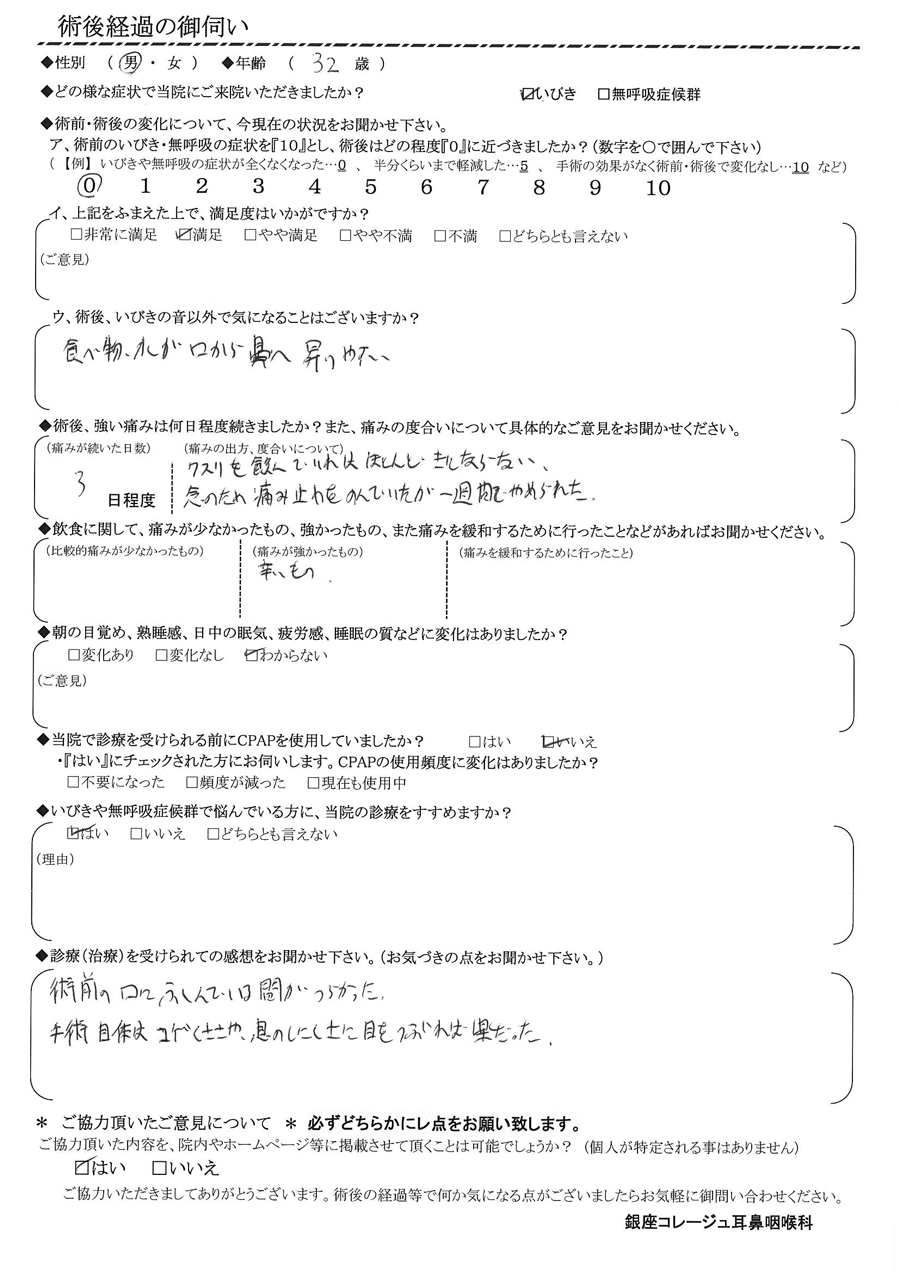 術後経過の御伺い
◆性別 （ 男 ・ 女 ） ◆年齢 （ 32 歳 ）
◆どの様な症状で当院にご来院いただきましたか？ ☑いびき □無呼吸症候群
◆術前・術後の変化について、今現在の状況をお聞かせ下さい。
ア、術前のいびき・無呼吸の症状を『10』とし、術後はどの程度『0』に近づきましたか？（数字を○で囲んで下さい）
（ 【例】 いびきや無呼吸の症状が全くなくなった…0 、 半分くらいまで軽減した…5 、 手術の効果がなく術前・術後で変化なし…10 など）
0 1 2 3 4 5 6 7 8 9 10
イ、上記をふまえた上で、満足度はいかがですか？
□非常に満足 ☑満足 □やや満足 □やや不満 □不満 □どちらとも言えない
（ご意見）
ウ、術後、いびきの音以外で気になることはございますか？
食べ物、水が 口から 鼻へ 昇りやすい、
◆術後、強い痛みは何日程度続きましたか？また、痛みの度合いについて具体的なご意見をお聞かせください。
（痛みが続いた日数） （痛みの出方、度合いについて）
クスリを飲んでいれば ほとんど きにならない、
3 日程度
念のため 痛み止めをのんでいたが 一週間でやめられた.
◆飲食に関して、痛みが少なかったもの、強かったもの、また痛みを緩和するために行ったことなどがあればお聞かせください。
（比較的痛みが少なかったもの） （痛みが強かったもの） （痛みを緩和するために行ったこと）
辛いもの.
◆朝の目覚め、熟睡感、日中の眠気、疲労感、睡眠の質などに変化はありましたか？
□変化あり □変化なし ☑わからない
（ご意見）
◆当院で診療を受けられる前にCPAPを使用していましたか？ □はい ☑いいえ
・『はい』にチェックされた方にお伺いします。CPAPの使用頻度に変化はありましたか？
□不要になった □頻度が減った □現在も使用中
◆いびきや無呼吸症候群で悩んでいる方に、当院の診療をすすめますか？
☑はい □いいえ □どちらとも言えない
（理由）
◆診療（治療）を受けられての感想をお聞かせ下さい。（お気づきの点をお聞かせ下さい。）
術前の 口に ふくんでいる 間が つらかった.
手術 自体は 息のしにくさに 目をつぶれば 楽だった.
＊ ご協力頂いたご意見について ＊ 必ずどちらかにレ点をお願い致します。
ご協力頂いた内容を、院内やホームページ等に掲載させて頂くことは可能でしょうか？ （個人が特定される事はありません）
☑はい □いいえ
ご協力いただきましてありがとうございます。術後の経過等で何か気になる点がございましたらお気軽に御問い合わせください。
銀座コレージュ耳鼻咽喉科